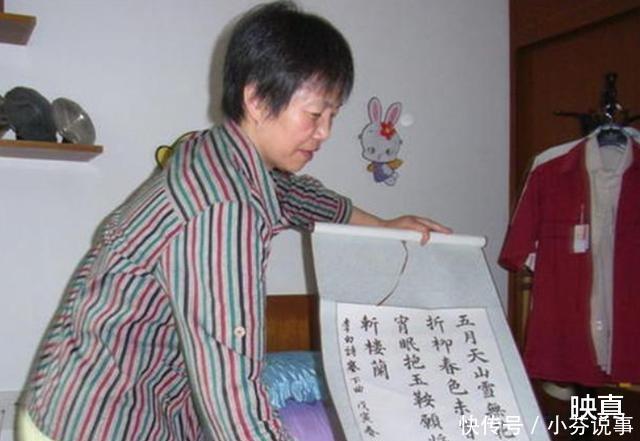 五月天山雪
折柳春色未
宵眠抱玉鞍願
斬楼蘭
李白詩塞下曲 戊寅春
映真
快传号 / 小芬说事